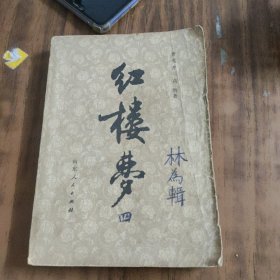 红楼梦
四
山东人民出版社
林為輯